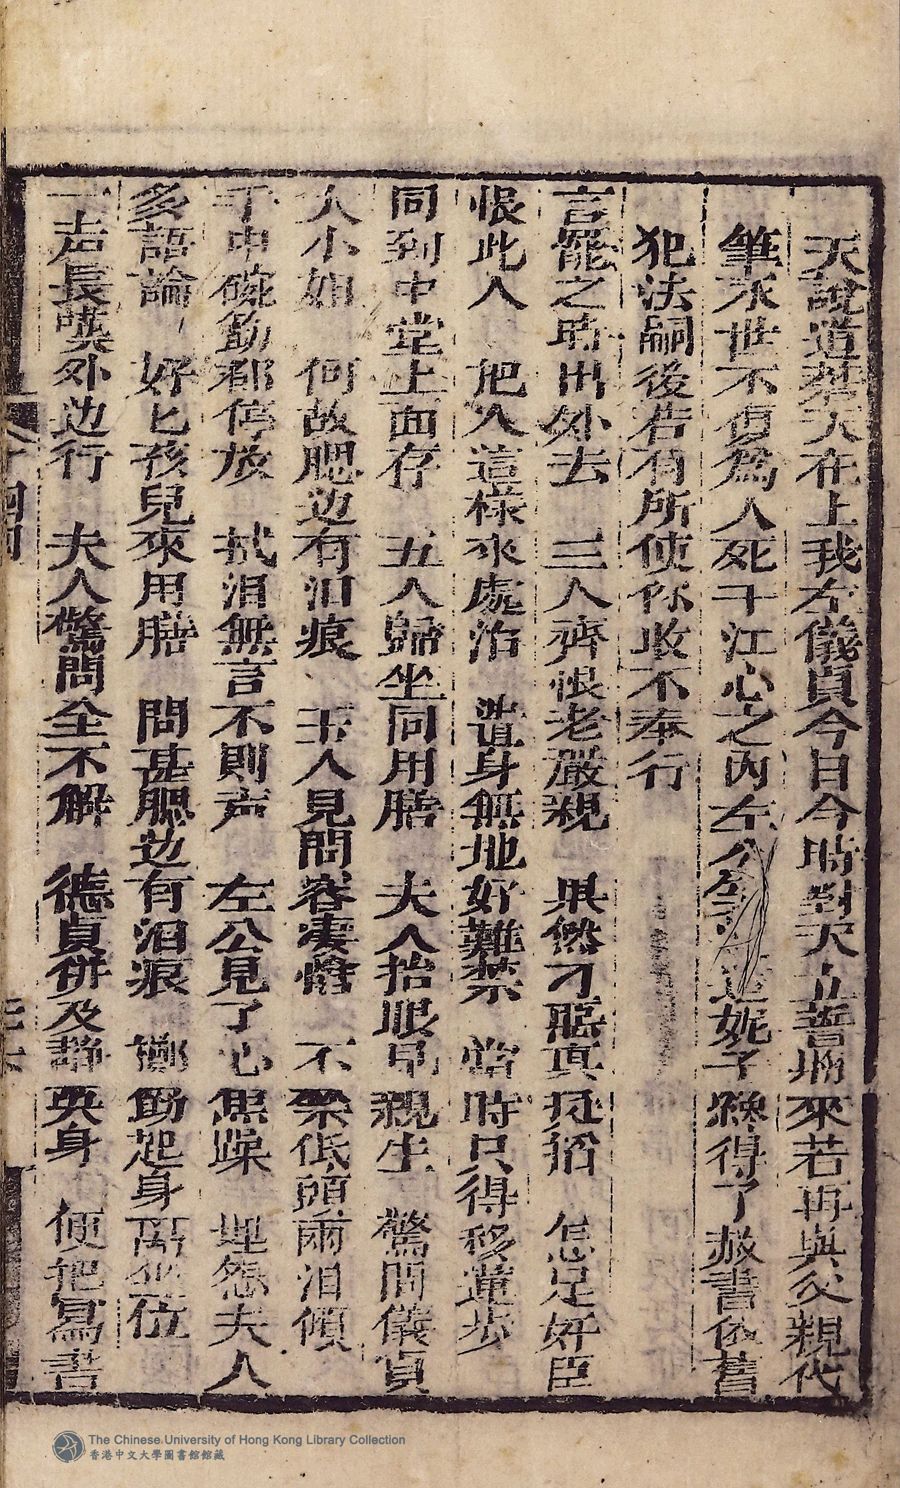 天說道蒼天在上我左儀貞今日今時對天立誓將來若再與父親代
筆永世不復為人死于江心之內左公 道妮子 得了赦書依舊
犯法嗣後若有所使你敢不奉行
言罷之時出外去　三人齊恨老嚴親　果然才 真 　怎 奸臣
恨此人　把人這樣來處治　 身無地好難禁　當時只得移蓮步
同到中堂上面存　五人歸坐同用膳　夫人抬眼 親生　驚問儀貞
大小姐　何故腮边有泪痕　玉人見問容凄慘　不 低頭兩泪傾
手中碗筯都停放　拭泪無言不則声　左公見了心焦燥　埋怨夫人
多語論　好匕孩兒來用膳　問甚腮边有泪痕　擲筯起身离坐位
一声長嘆外边行　夫人驚問全不解　德貞併及靜英身　便把寫書
香港中文大學圖書館館藏
The Chinese University of Hong Kong Library Collection